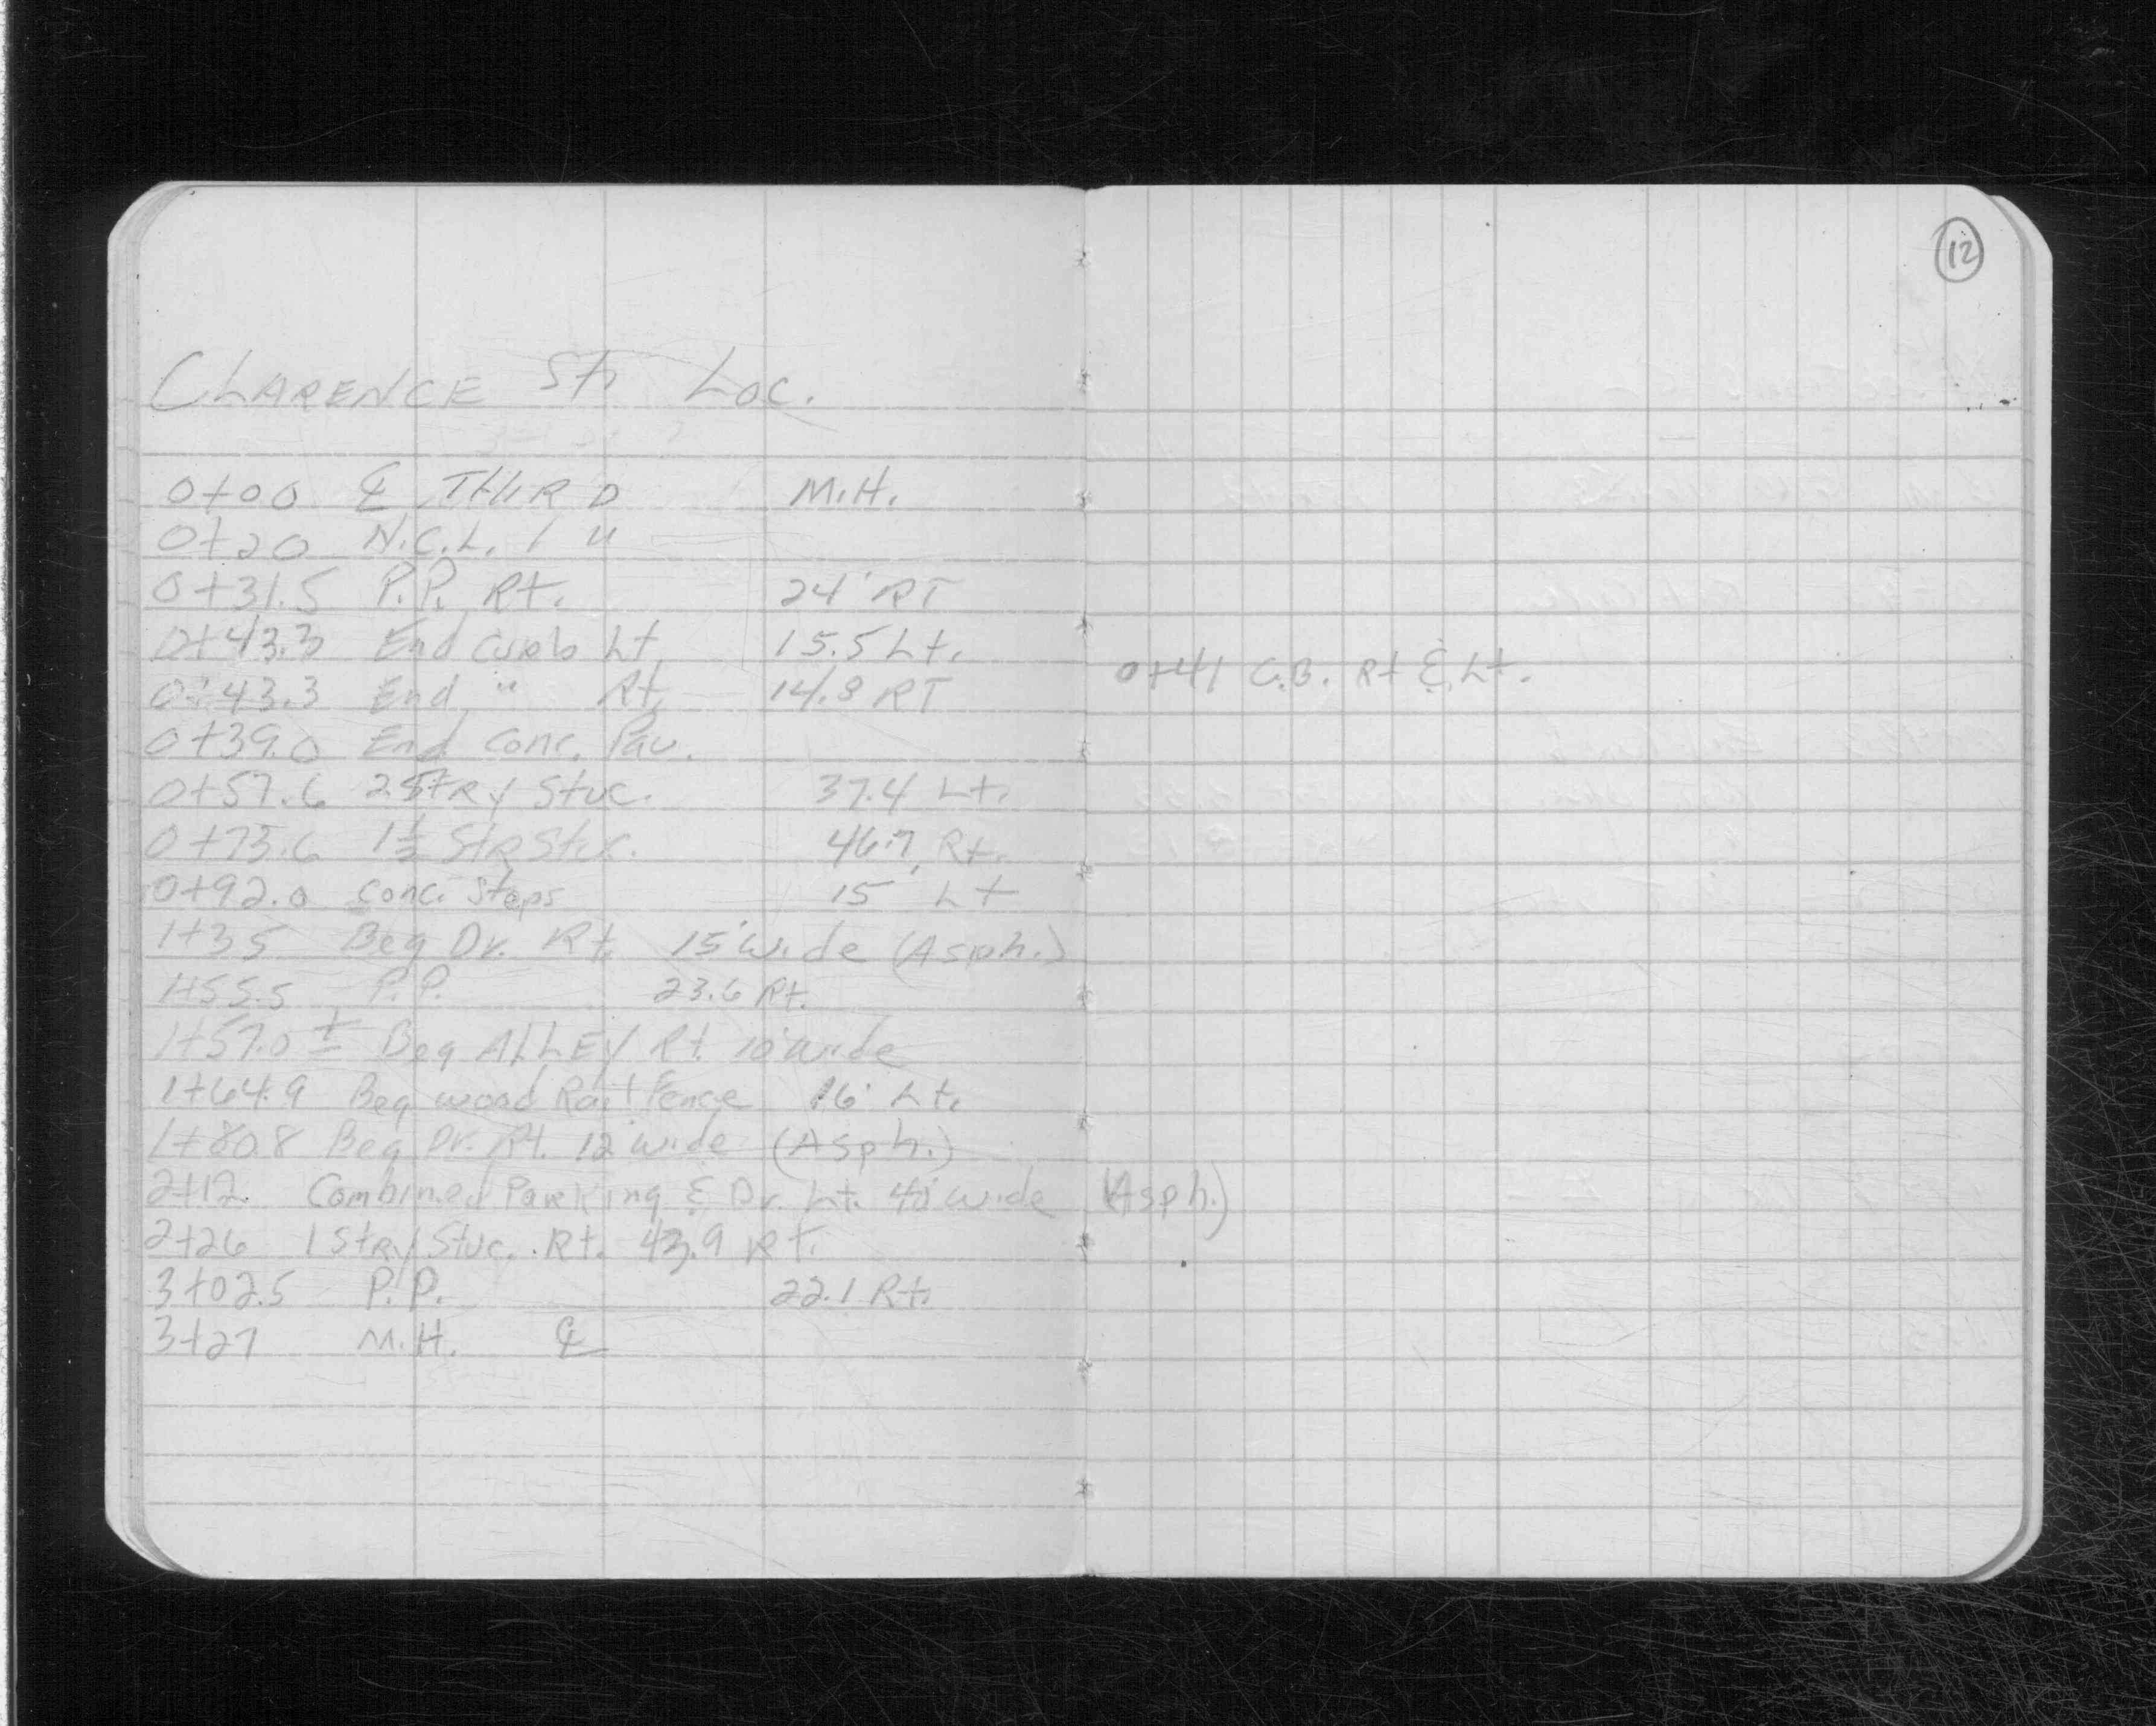 12
CLARENCE St. LOC.
0+00 ℄ THIRD M.H.
0+20 N.C.L. / "
0+31.5 P.P. Rt. 24' RT
0+43.3 End Curb Lt 15.5 Lt.
0+43.3 End " Rt. 14.8 RT
0+41 C.B. Rt & Lt.
0+39.0 End Conc. Pav.
0+57.6 2 Stry Stuc. 37.4 Lt.
0+75.6 1½ Str Stuc. 46.7 Rt.
0+92.0 Conc. Steps 15' Lt
1+35 Beg Dr. Rt. 15' wide (Asph.)
1+55.5 P.P. 23.6 Rt.
1+57.0 ± Beg ALLEY Rt. 10' wide
1+64.9 Beg wood Rail Fence 16' Lt.
1+80.8 Beg Dr. Rt. 12' wide (Asph.)
2+12. Combined Parking & Dr. Lt. wide (Asph.)
2+26 1 Stry Stuc. Rt. 43.9 Rt.
3+02.5 P.P. 22.1 Rt.
3+27 M.H. ℄